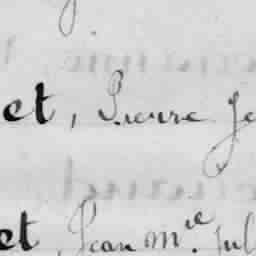 et, Pierre Je
et, Jean Mie Jul